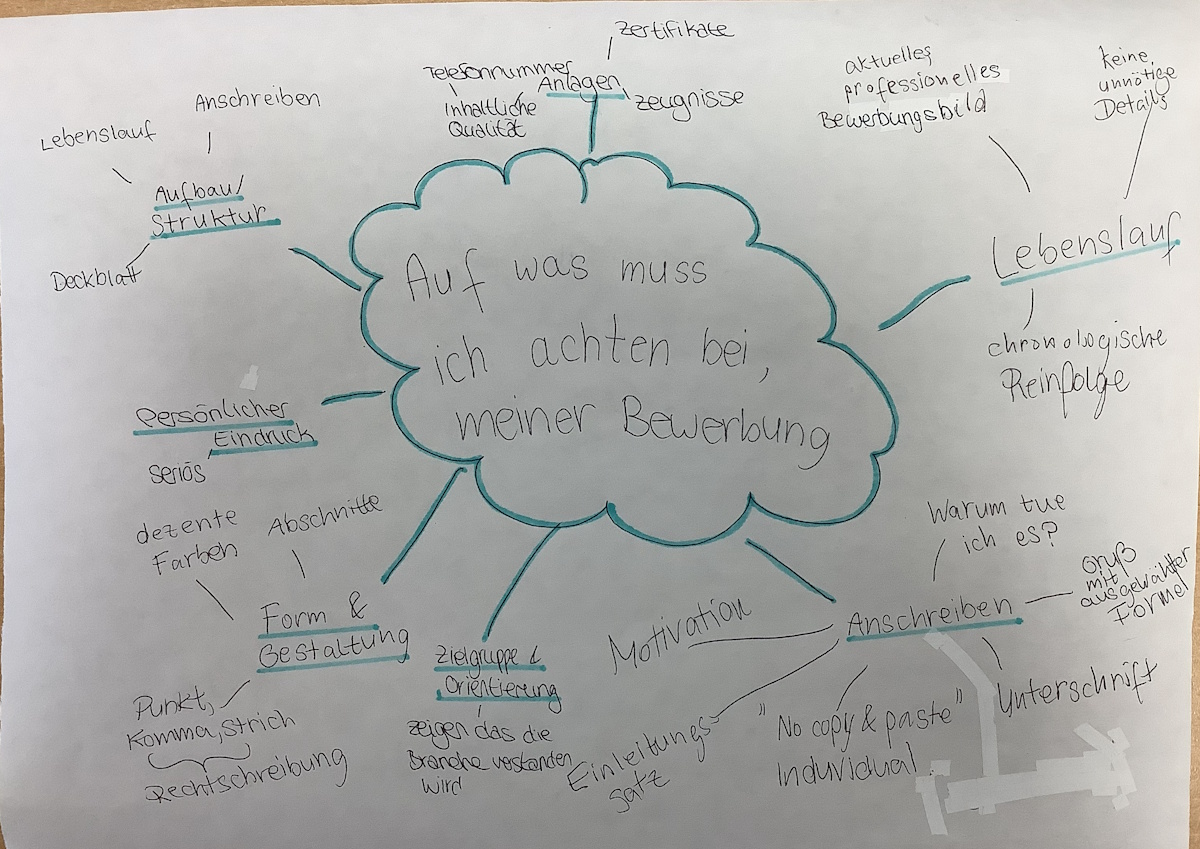 Auf was muss
ich achten bei,
meiner Bewerbung
Anlagen
Zertifikate
Zeugnisse
Telefonnummer
Inhaltliche
Qualität
Lebenslauf
aktuelles
professionelles
Bewerbungsbild
keine
unnötige
Details
chronologische
Reinfolge
Anschreiben
Warum tue
ich es?
Gruß
mit
ausgewählter
Formel
Unterschrift
"No copy & paste"
Induvidual
Einleitungs
satz
Motivation
Zielgruppe &
Orientierung
zeigen das die
Branche verstanden
wird
Form &
Gestaltung
dezente
Farben
Abschnitte
Punkt,
Komma, Strich
Rechtschreibung
Persönlicher
Eindruck
seriös
Aufbau/
Struktur
Lebenslauf
Anschreiben
Deckblatt